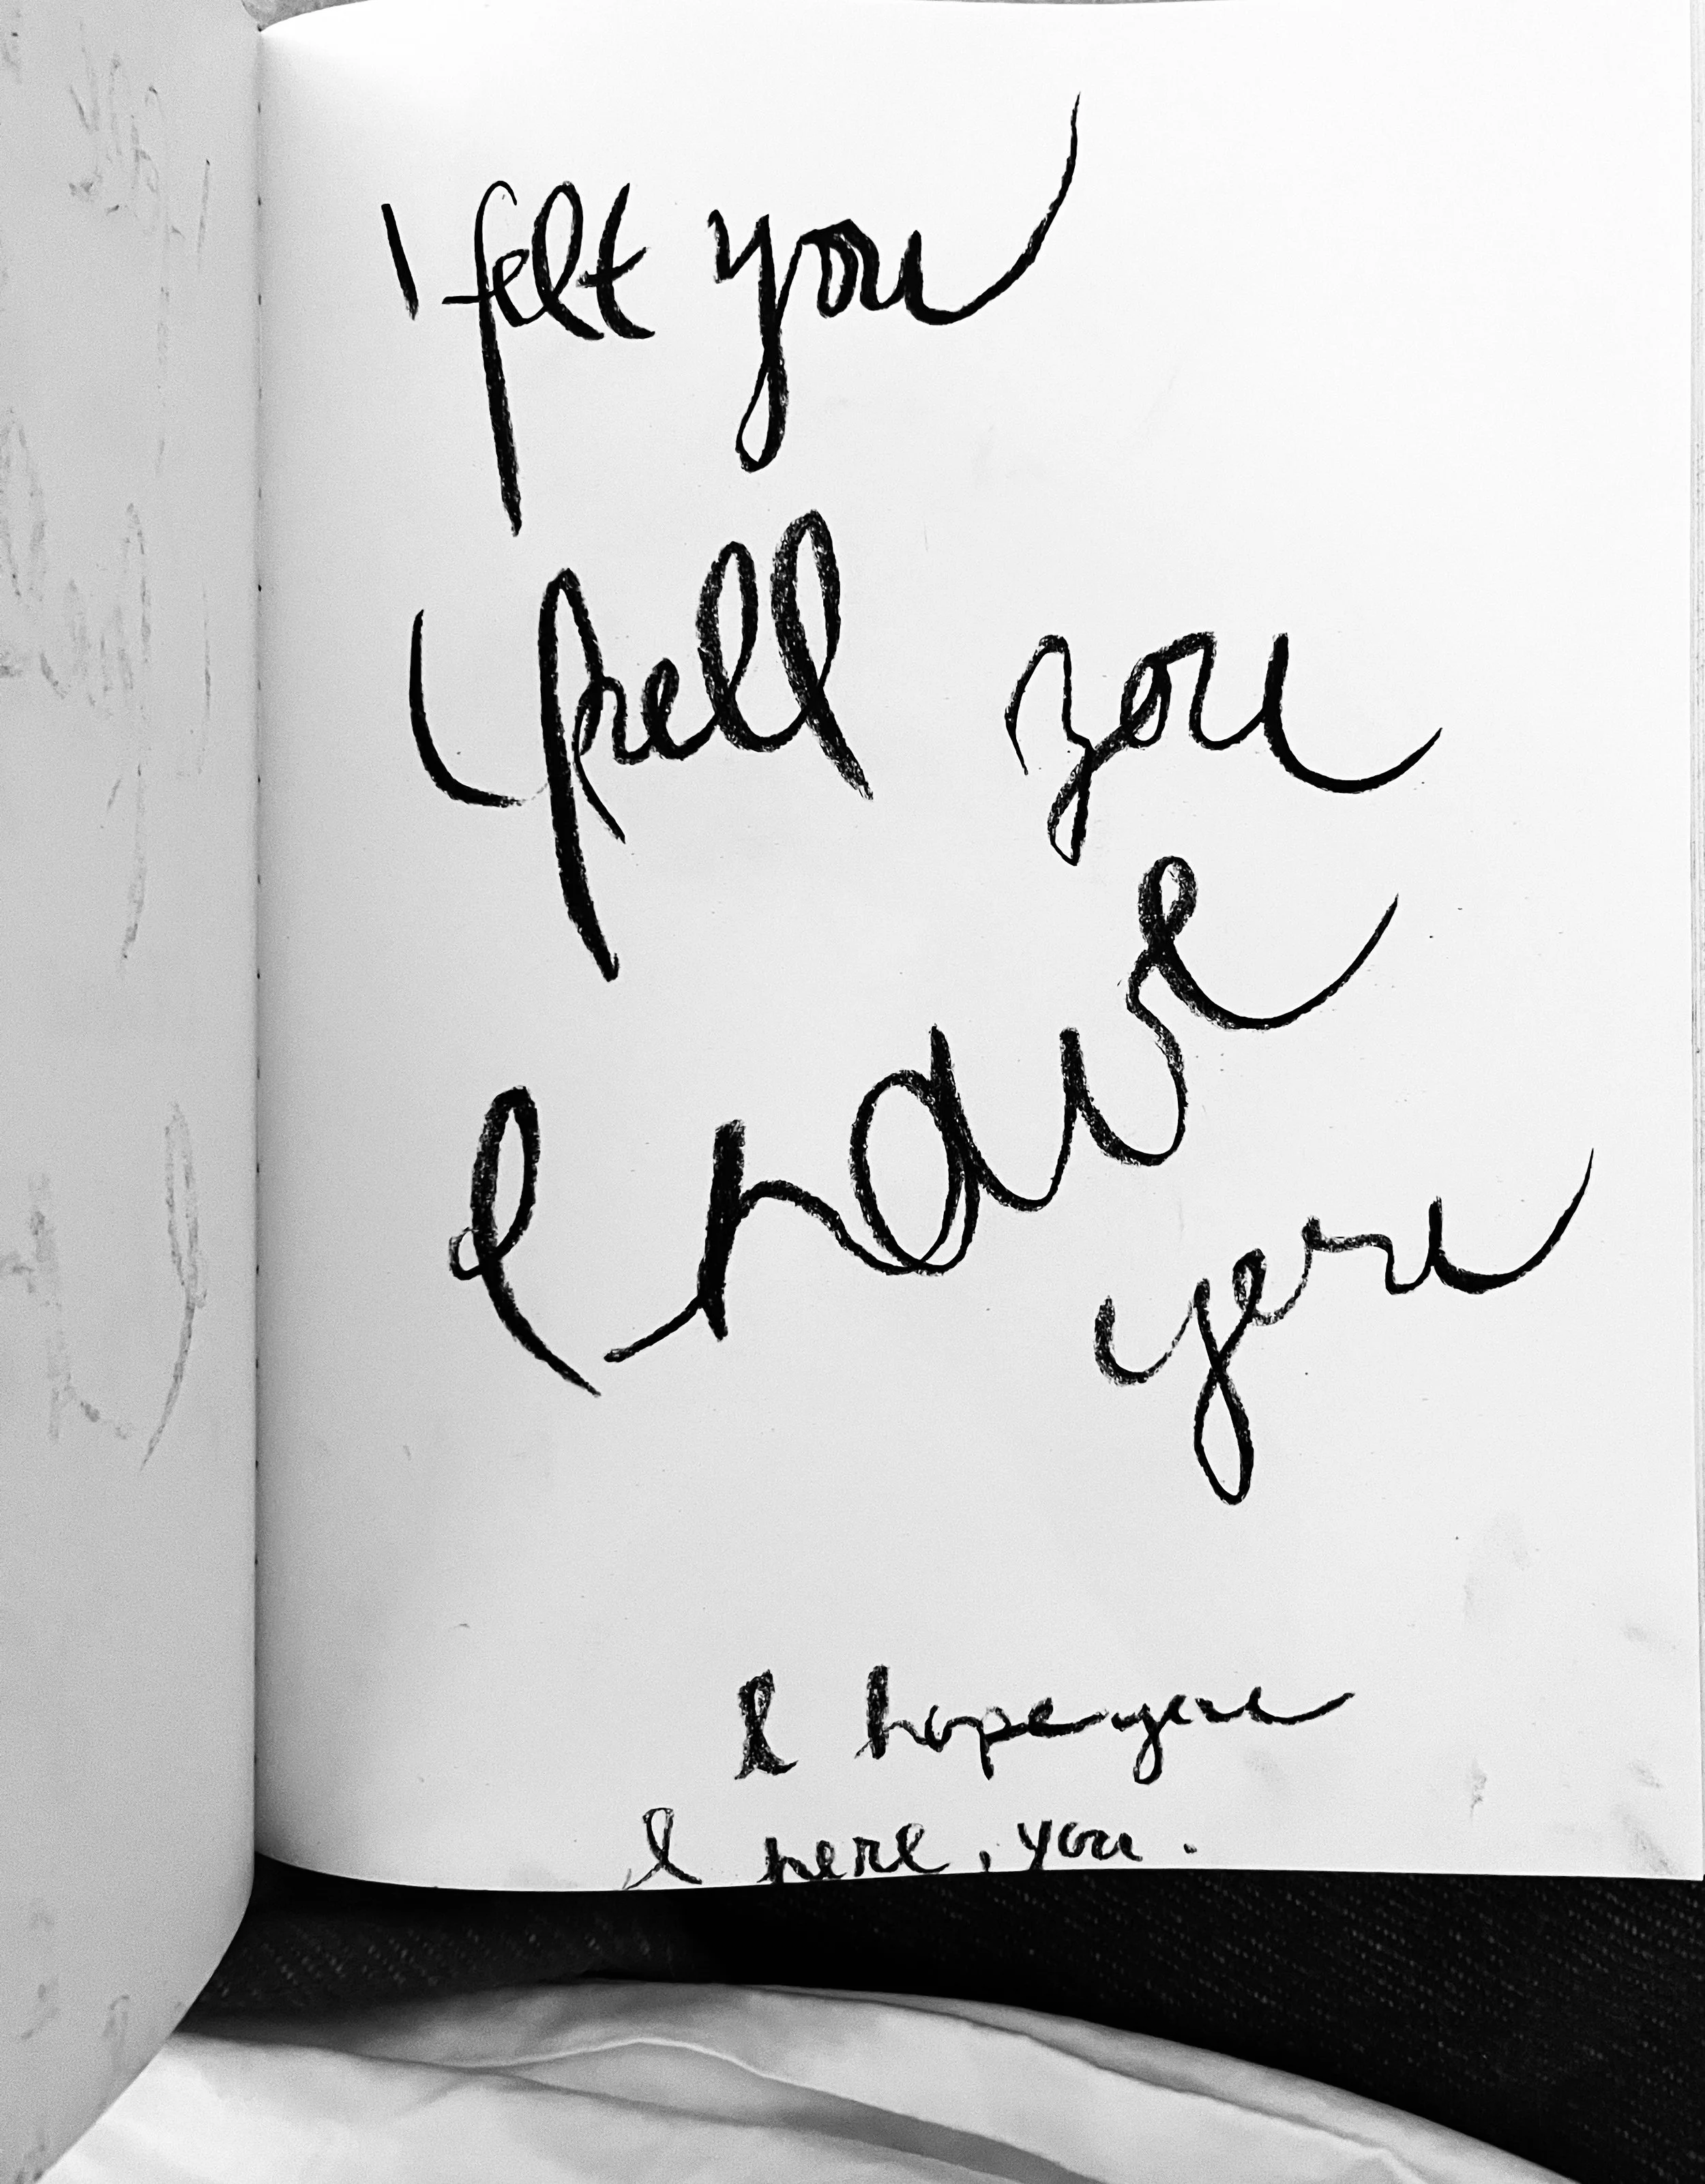 I felt you
I fell you
I have you
I hope you
I here, you.